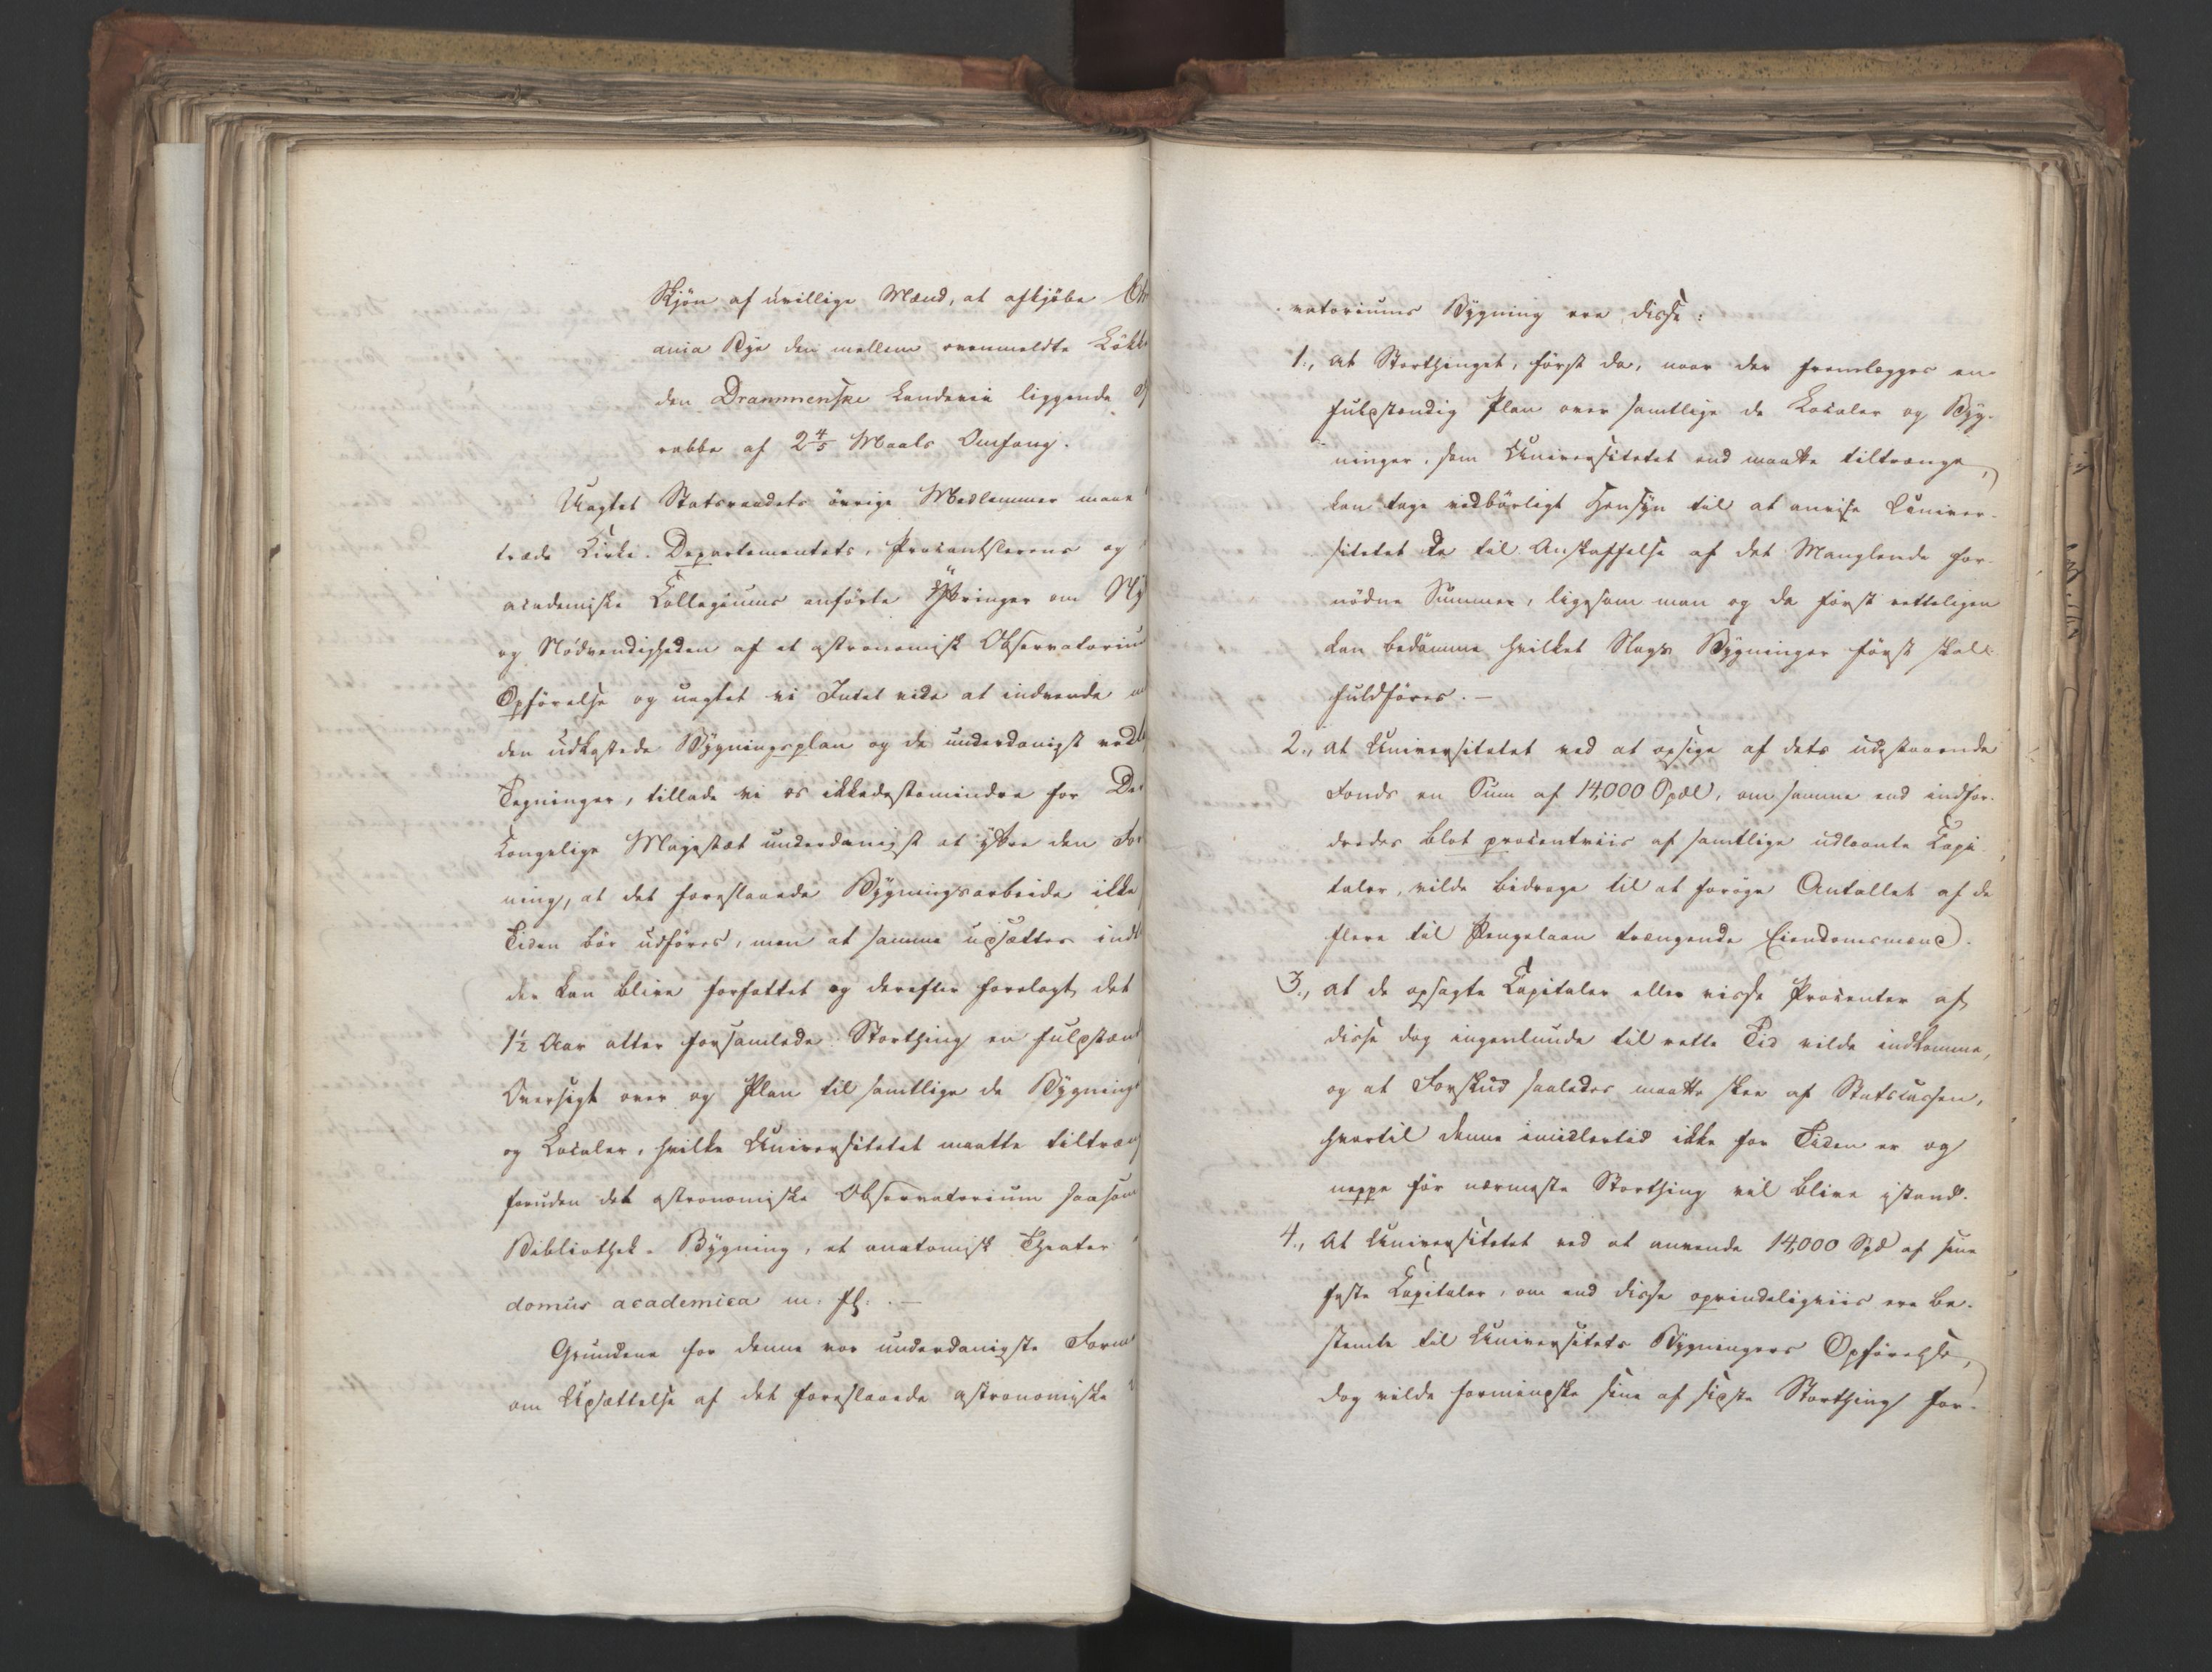 Skjön af uvillige Mænd, at afkjöbe Chr
ania Bye den mellem ovenmeldte Lökk
den Drammenske Landevei liggende
rabbe af 2 4/5 Maals Omfang.
Uagtet Statsraadets övrige Medlemmer maae
træde Kirke-Departementets, Procantslerens og
academiske Collegiums anförte Yttringer om Ny
og Nödvendigheden af et astronomisk Observatoriu
Opförelse og uagtet vi Intet vide at indvende
den udkastede Bygningsplan og de underdanigst vedl
Tegninger, tillade vi os ikkedestomindre for De
Kongelige Majestæt underdanigst at yttre den For
ning, at det foreslaaede Bygningsarbeide ikke
Tiden bör udföres, men at samme udsættes indt
der kan blive forfattet og derefter forelagt det
1½ Aar atter forsamlede Storthing en fuldstænd
Oversigt over og Plan til samtlige de Bygning
og Localer, hvilke Universitetet maatte tiltræn
foruden det astronomiske Observatorium saasom
Bibliothek-Bygning, et anatomisk Theater
domus academica m. fl. —
Grundene for denne vor underdanigste Form
om Udsættelse af det foreslaaede astronomiske
vatoriums Bygning ere disse:
1., at Storthinget, först da, naar der fremlægges en
fuldstændig Plan over samtlige de Localer og Byg-
ninger, som Universitetet end maatte tiltrænge,
kan tage vedbörligt Hensyn til at anvise Univer-
sitetet de til Anskaffelse af det Manglende for-
nödne Summer, ligesom man og da först retteligen
kan bedömme hvilket Slags Bygninger först skall
fuldföres. —
2., at Universitetet ved at opsige af dets udestaaende
Fonds en Sum af 14,000 Spdl, om samme end indfor-
dredes blot procentviis af samtlige udlaante Capi-
taler, vilde bidrage til at foröge Antallet af de
flere til Pengelaan trængende Eiendomsmænd.
3., at de opsagte Capitaler eller visse Procenter af
disse dog ingenlunde til rette Tid vilde indkomme,
og at Forskud saaledes maatte skee af Statscassen,
hvortil denne imidlertid ikke for Tiden er og
neppe för nærmeste Storthing vil blive istand.
4., at Universitetet ved at anvende 14,000 Spd af sine
faste Capitaler, om end disse oprindeligviis ere be-
stemte til Universitets Bygningers Opförelse,
dog vilde formindske sine af sidste Storthing for-